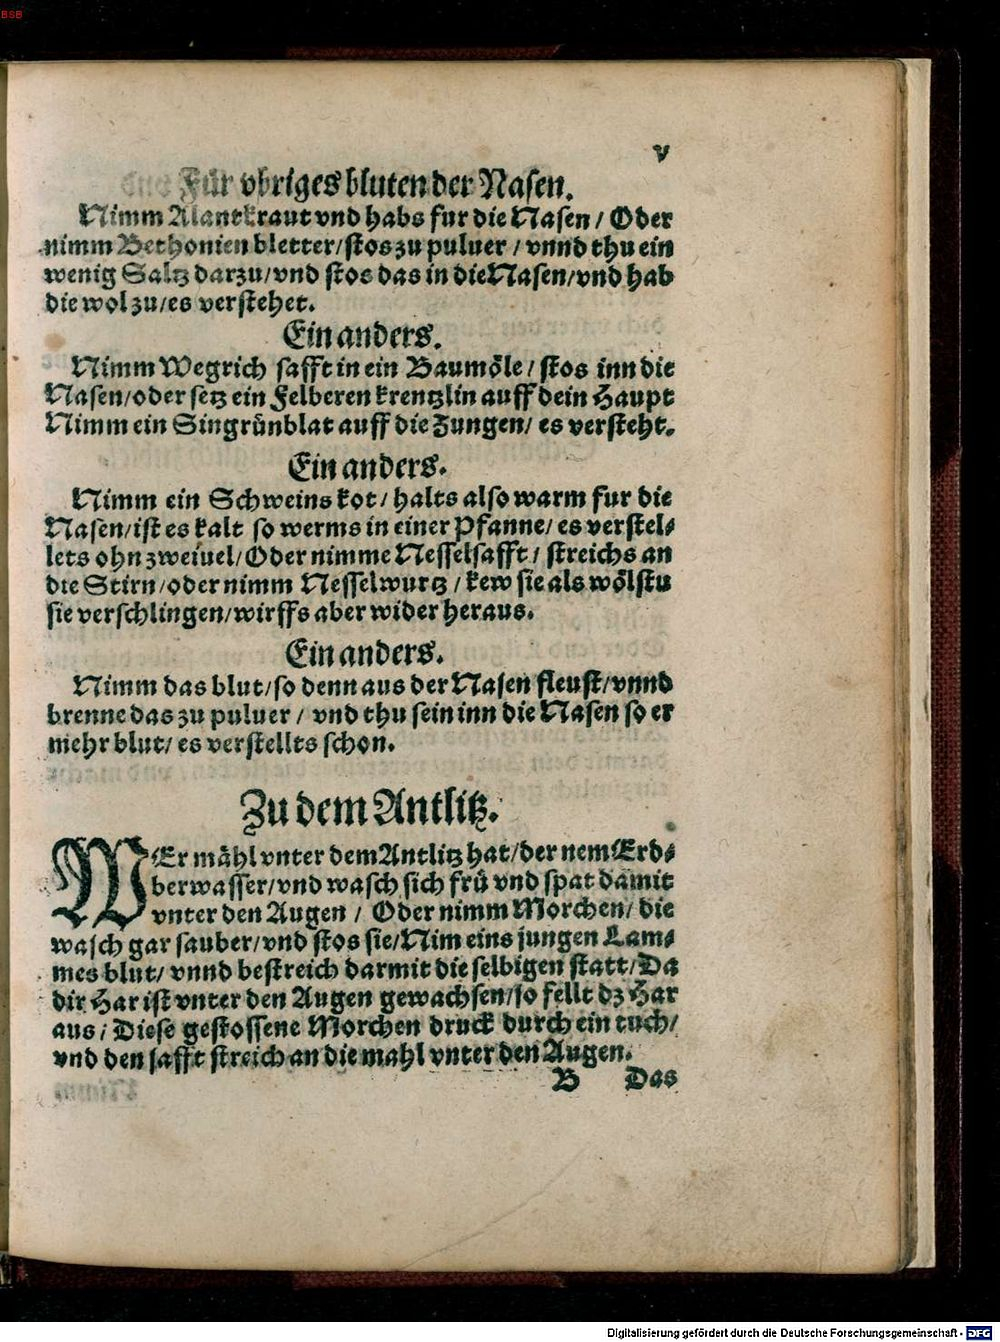 BSB
v
Für vbriges bluten der Nasen.
Nimm Alantkraut vnd habs fur die Nasen / Oder
nimm Bethonien bletter/stos zu puluer / vnnd thu ein
wenig Saltz darzu/vnd stos das in die Nasen/vnd hab
die wol zu/es verstehet.
Ein anders.
Nimm Wegrich safft in ein Baumöle / stos inn die
Nasen/oder setz ein Felberen krentzlin auff dein Haupt
Nimm ein Singrünblat auff die Zungen/ es versteht.
Ein anders.
Nimm ein Schweins kot / halts also warm fur die
Nasen/ist es kalt so werms in einer Pfanne/ es verstel⸗
lets ohn zweiuel/Oder nimme Nesselsafft / streichs an
die Stirn/oder nimm Nesselwurtz / kew sie als wölstu
sie verschlingen/wirffs aber wider heraus.
Ein anders.
Nimm das blut/so denn aus der Nasen fleust/vnnd
brenne das zu puluer / vnd thu sein inn die Nasen so er
mehr blut/ es verstellts schon.
Zu dem Antlitz.
WEr mähl vnter dem Antlitz hat/der nem Erd⸗
berwasser/vnd wasch sich frü vnd spat damit
vnter den Augen / Oder nimm Morchen/ die
wasch gar sauber/vnd stos sie/Nim eins jungen Lam⸗
mes blut/ vnnd bestreich darmit die selbigen statt/Da
dir Har ist vnter den Augen gewachsen/so fellt dz Har
aus / Diese gestossene Morchen druck durch ein tuch/
vnd den safft streich an die mahl vnter den Augen.
B Das
Digitalisierung gefördert durch die Deutsche Forschungsgemeinschaft - DFG